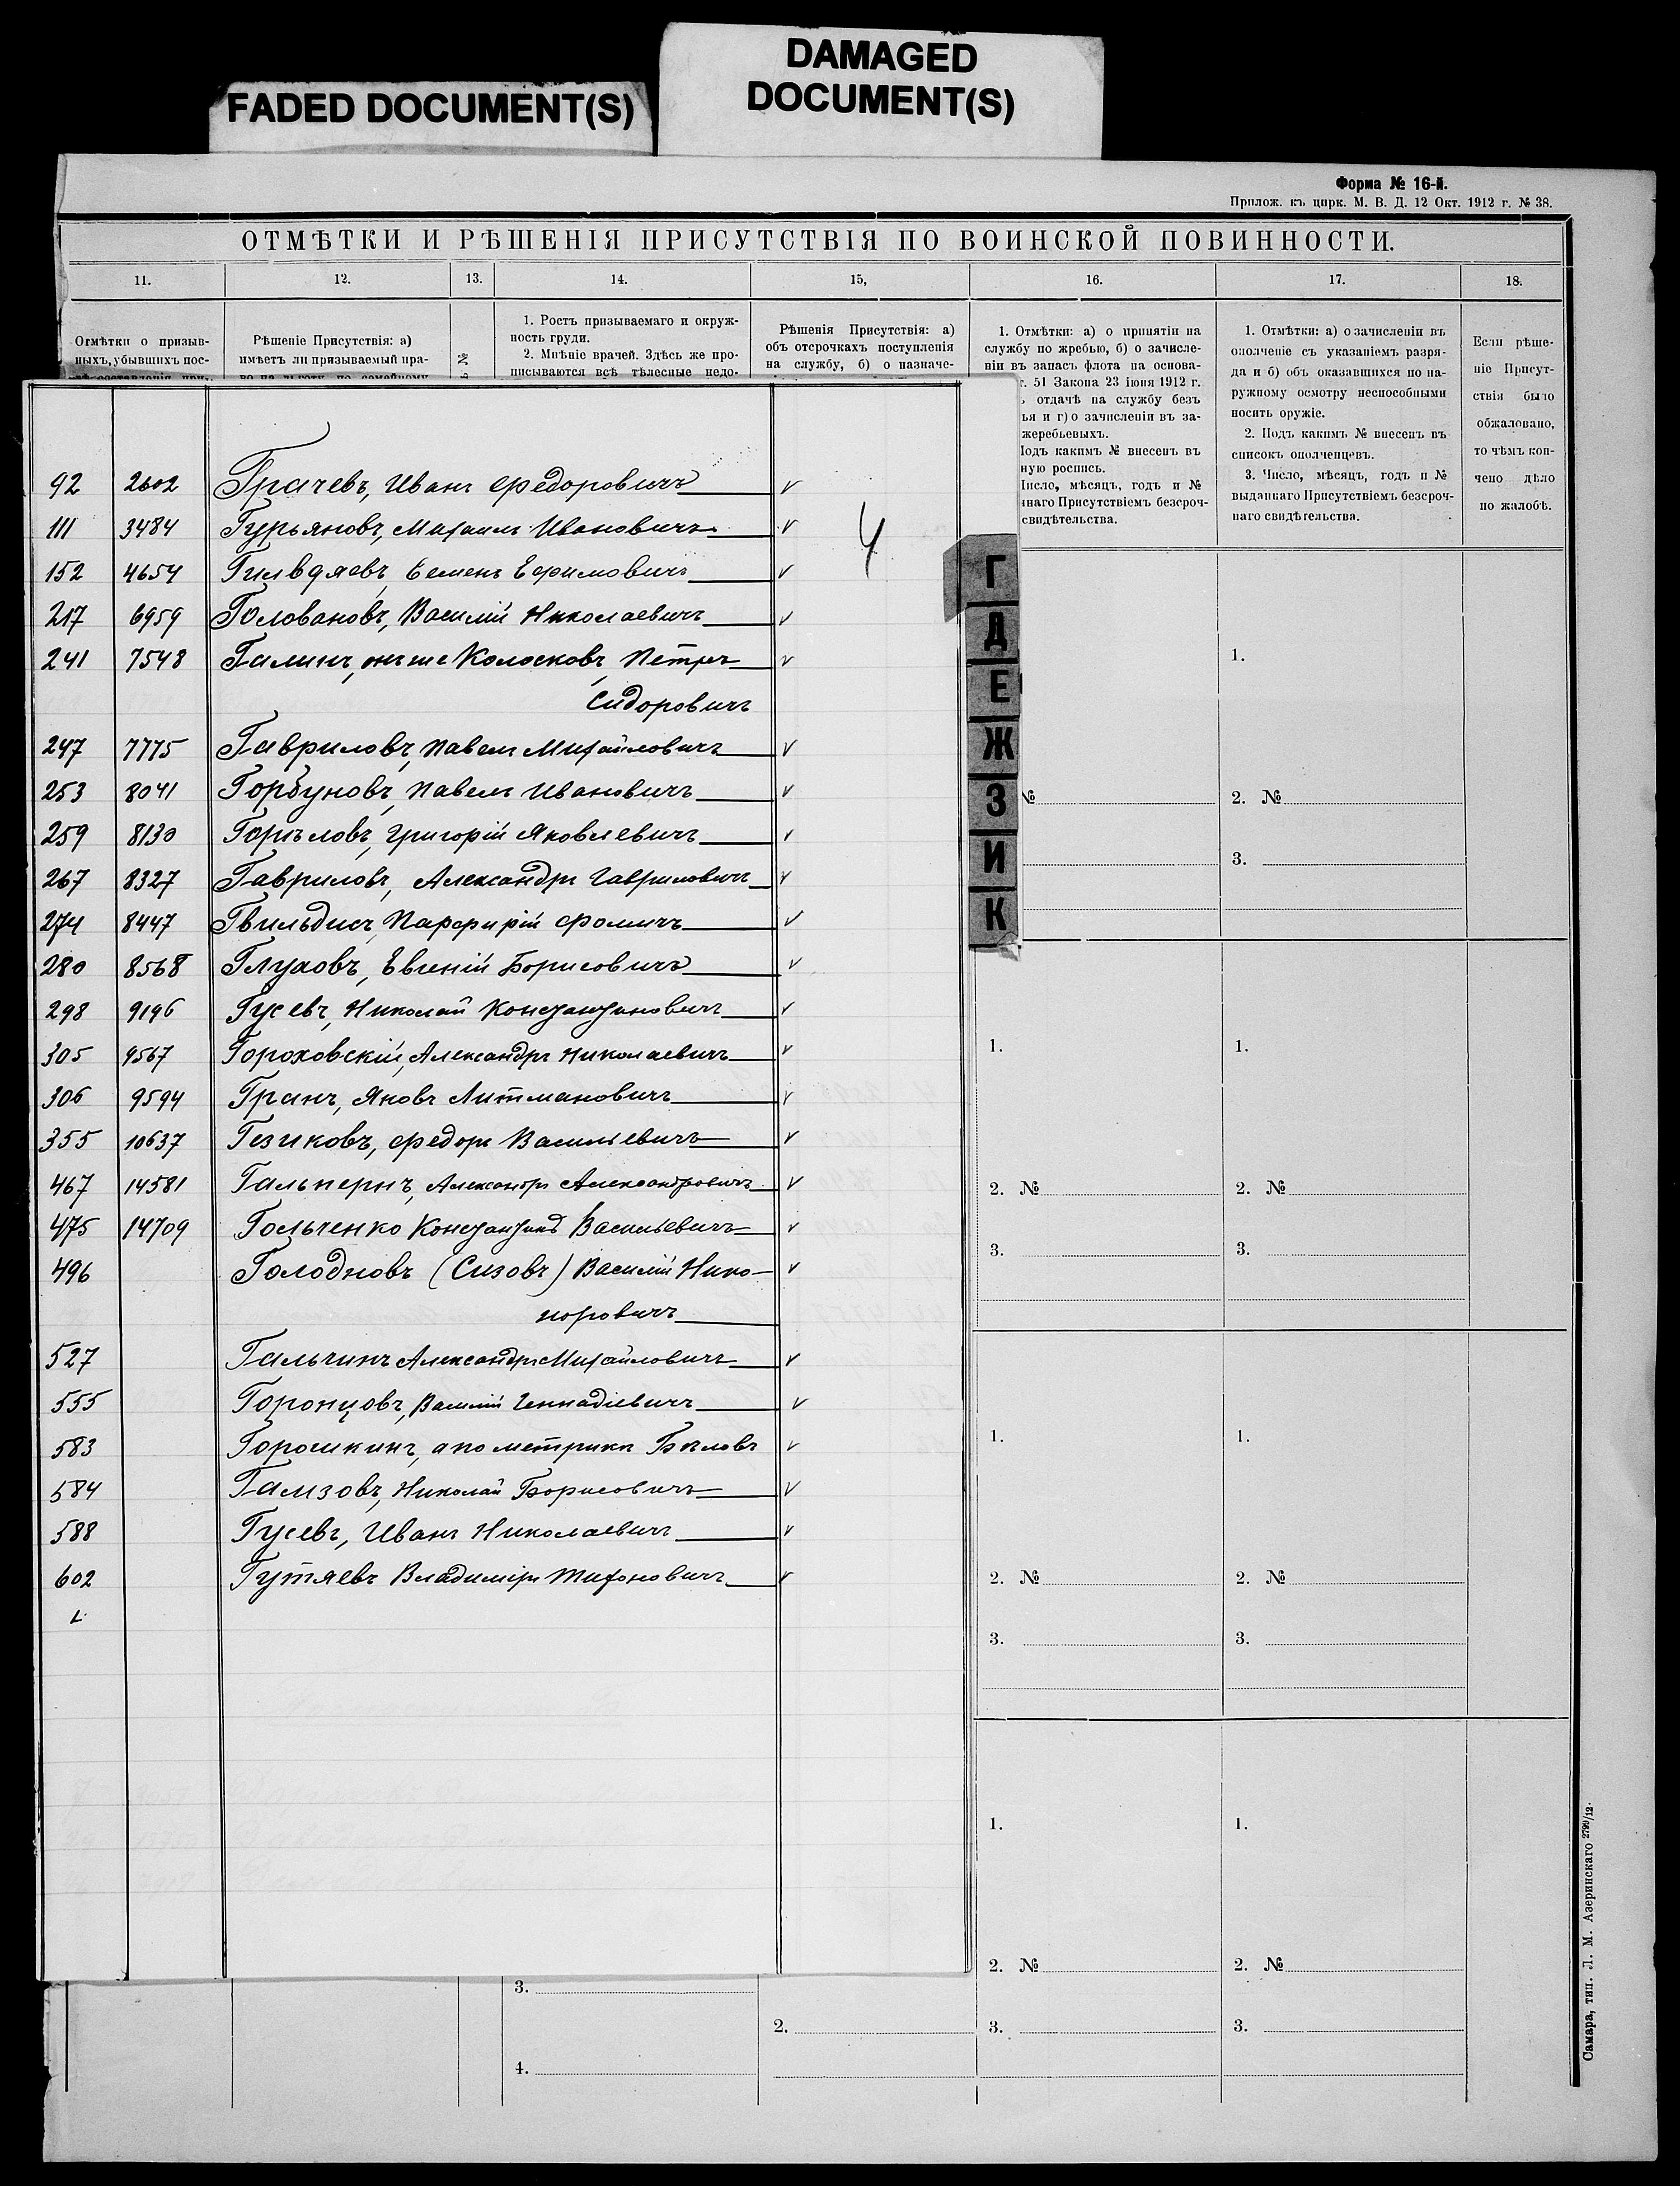 FADED DOCUMENT(S)
DAMAGED
DOCUMENT(S)
Форма № 16-й.
Прилож. къ цирк. М. В. Д. 12 Окт. 1912 г. № 38.
ОТМѢТКИ И РѢШЕНІЯ ПРИСУТСТВІЯ ПО ВОИНСКОЙ ПОВИННОСТИ.
11. 12. 13. 14. 15, 16. 17. 18.
Отмѣтки о призыв-
ныхъ, убывшихъ пос-
Рѣшеніе Присутствія: а)
имѣетъ ли призываемый пра-
во на льготу по семейному
№
1. Ростъ призываемаго и окруж-
ность груди.
2. Мнѣніе врачей. Здѣсь же про-
писываются всѣ тѣлесные недо-
Рѣшенія Присутствія: а)
объ отсрочкахъ поступленія
на службу, б) о назначе-
1. Отмѣтки: а) о принятіи на
службу по жребью, б) о зачисле-
ніи въ запасъ флота на основа-
г. 51 Закона 23 іюня 1912 г.
отдачѣ на службу безъ
ья и г) о зачисленіи въ за-
жеребьевыхъ.
Подъ какимъ № внесенъ въ
ную роспись.
Число, мѣсяцъ, годъ и №
ннаго Присутствіемъ безсроч-
свидѣтельства.
1. Отмѣтки: а) о зачисленіи въ
ополченіе съ указаніемъ разря-
да и б) объ оказавшихся по на-
ружному осмотру неспособными
носить оружіе.
2. Подъ какимъ № внесенъ въ
списокъ ополченцевъ.
3. Число, мѣсяцъ, годъ и №
выданнаго Присутствіемъ безсроч-
наго свидѣтельства.
Если рѣше-
ніе Присут-
ствія было
обжаловано,
то чѣмъ кон-
чено дѣло
по жалобѣ.
92 2602 Грачевъ, Иванъ Федоровичъ
111 3484 Гурьяновъ, Михаилъ Ивановичъ
152 4654 Семенъ Ефимовичъ
217 6959 Головановъ, Василій Николаевичъ
241 7548 Галинъ, онъ же Колосковъ, Петръ
Сидоровичъ
247 7775 Гавриловъ, Павелъ Михайловичъ
253 8041 Горбуновъ, Павелъ Ивановичъ
259 8130 Горѣловъ, Григорій Яковлевичъ
267 8327 Гавриловъ, Александръ Гавриловичъ
274 8447 Гвильдисъ, Парфирій Фомичъ
280 8568 Глуховъ, Евгеній Борисовичъ
298 9196 Гусевъ, Николай Константиновичъ
305 9567 Гороховскій, Александръ Николаевичъ
306 9594 Гранъ, Яковъ Литмановичъ
355 10637 Гезиковъ, Федоръ Васильевичъ
467 14581 Гальпернъ, Александръ Александровичъ
475 14709 Гольченко Константинъ Васильевичъ
496 Голодновъ (Сизовъ) Василій Нико-
норовичъ
527 Гальчинъ Александръ Михайловичъ
555 Горонцовъ, Василій Геннадіевичъ
583 Горошкинъ, а по метрикѣ Бѣловъ
584 Гамзовъ, Николай Борисовичъ
588 Гусевъ, Иванъ Николаевичъ
602 Гутяевъ Владиміръ Тихоновичъ
4
Г
Д
Е
Ж
З
И
К
1.
№ 2. №
3.
1. 1.
2. № 2. №
3. 3.
1. 1.
2. № 2. №
3. 3.
1. 1.
2. № 2. №
3. 2. 3. 3.
4.
Самара, тип. Л. М. Азеринскаго 2799/12.